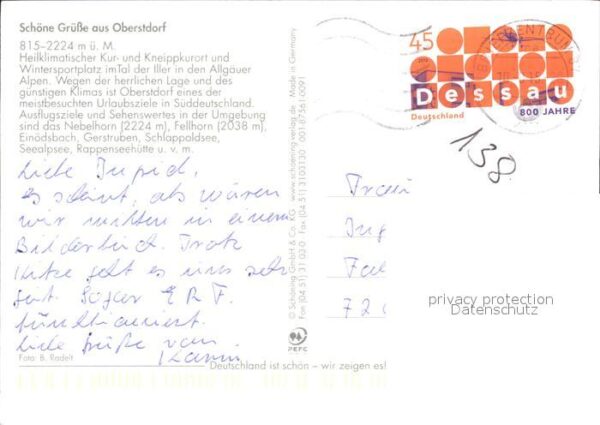 Schöne Grüße aus Oberstdorf
815–2224 m ü. M.
Heilklimatischer Kur- und Kneippkurort und
Wintersportplatz imTal der Iller in den Allgäuer
Alpen. Wegen der herrlichen Lage und des
günstigen Klimas ist Oberstdorf eines der
meistbesuchten Urlaubsziele in Süddeutschland.
Ausflugsziele und Sehenswertes in der Umgebung
sind das Nebelhorn (2224 m), Fellhorn (2038 m),
Einödsbach, Gerstruben, Schlappoldsee,
Seealpsee, Rappenseehütte u. v. m.
Liebe Ingrid,
es scheint, als wären
wir mitten in einem
Bilderbuch. Trotz
Hitze geht es uns sehr
gut. Sogar E R F.
funktioniert.
Liebe Grüße von
Karin
Foto: B. Radelt
Deutschland ist schön – wir zeigen es!
© Schöning GmbH & Co. KG · www.schoening-verlag.de · Made in Germany
Fon (04 51) 31 02-0 · Fax (04 51) 3103130
PEFC
45
Dessau
Deutschland
800 JAHRE
138
Frau
Ing
72
privacy protection
Datenschutz